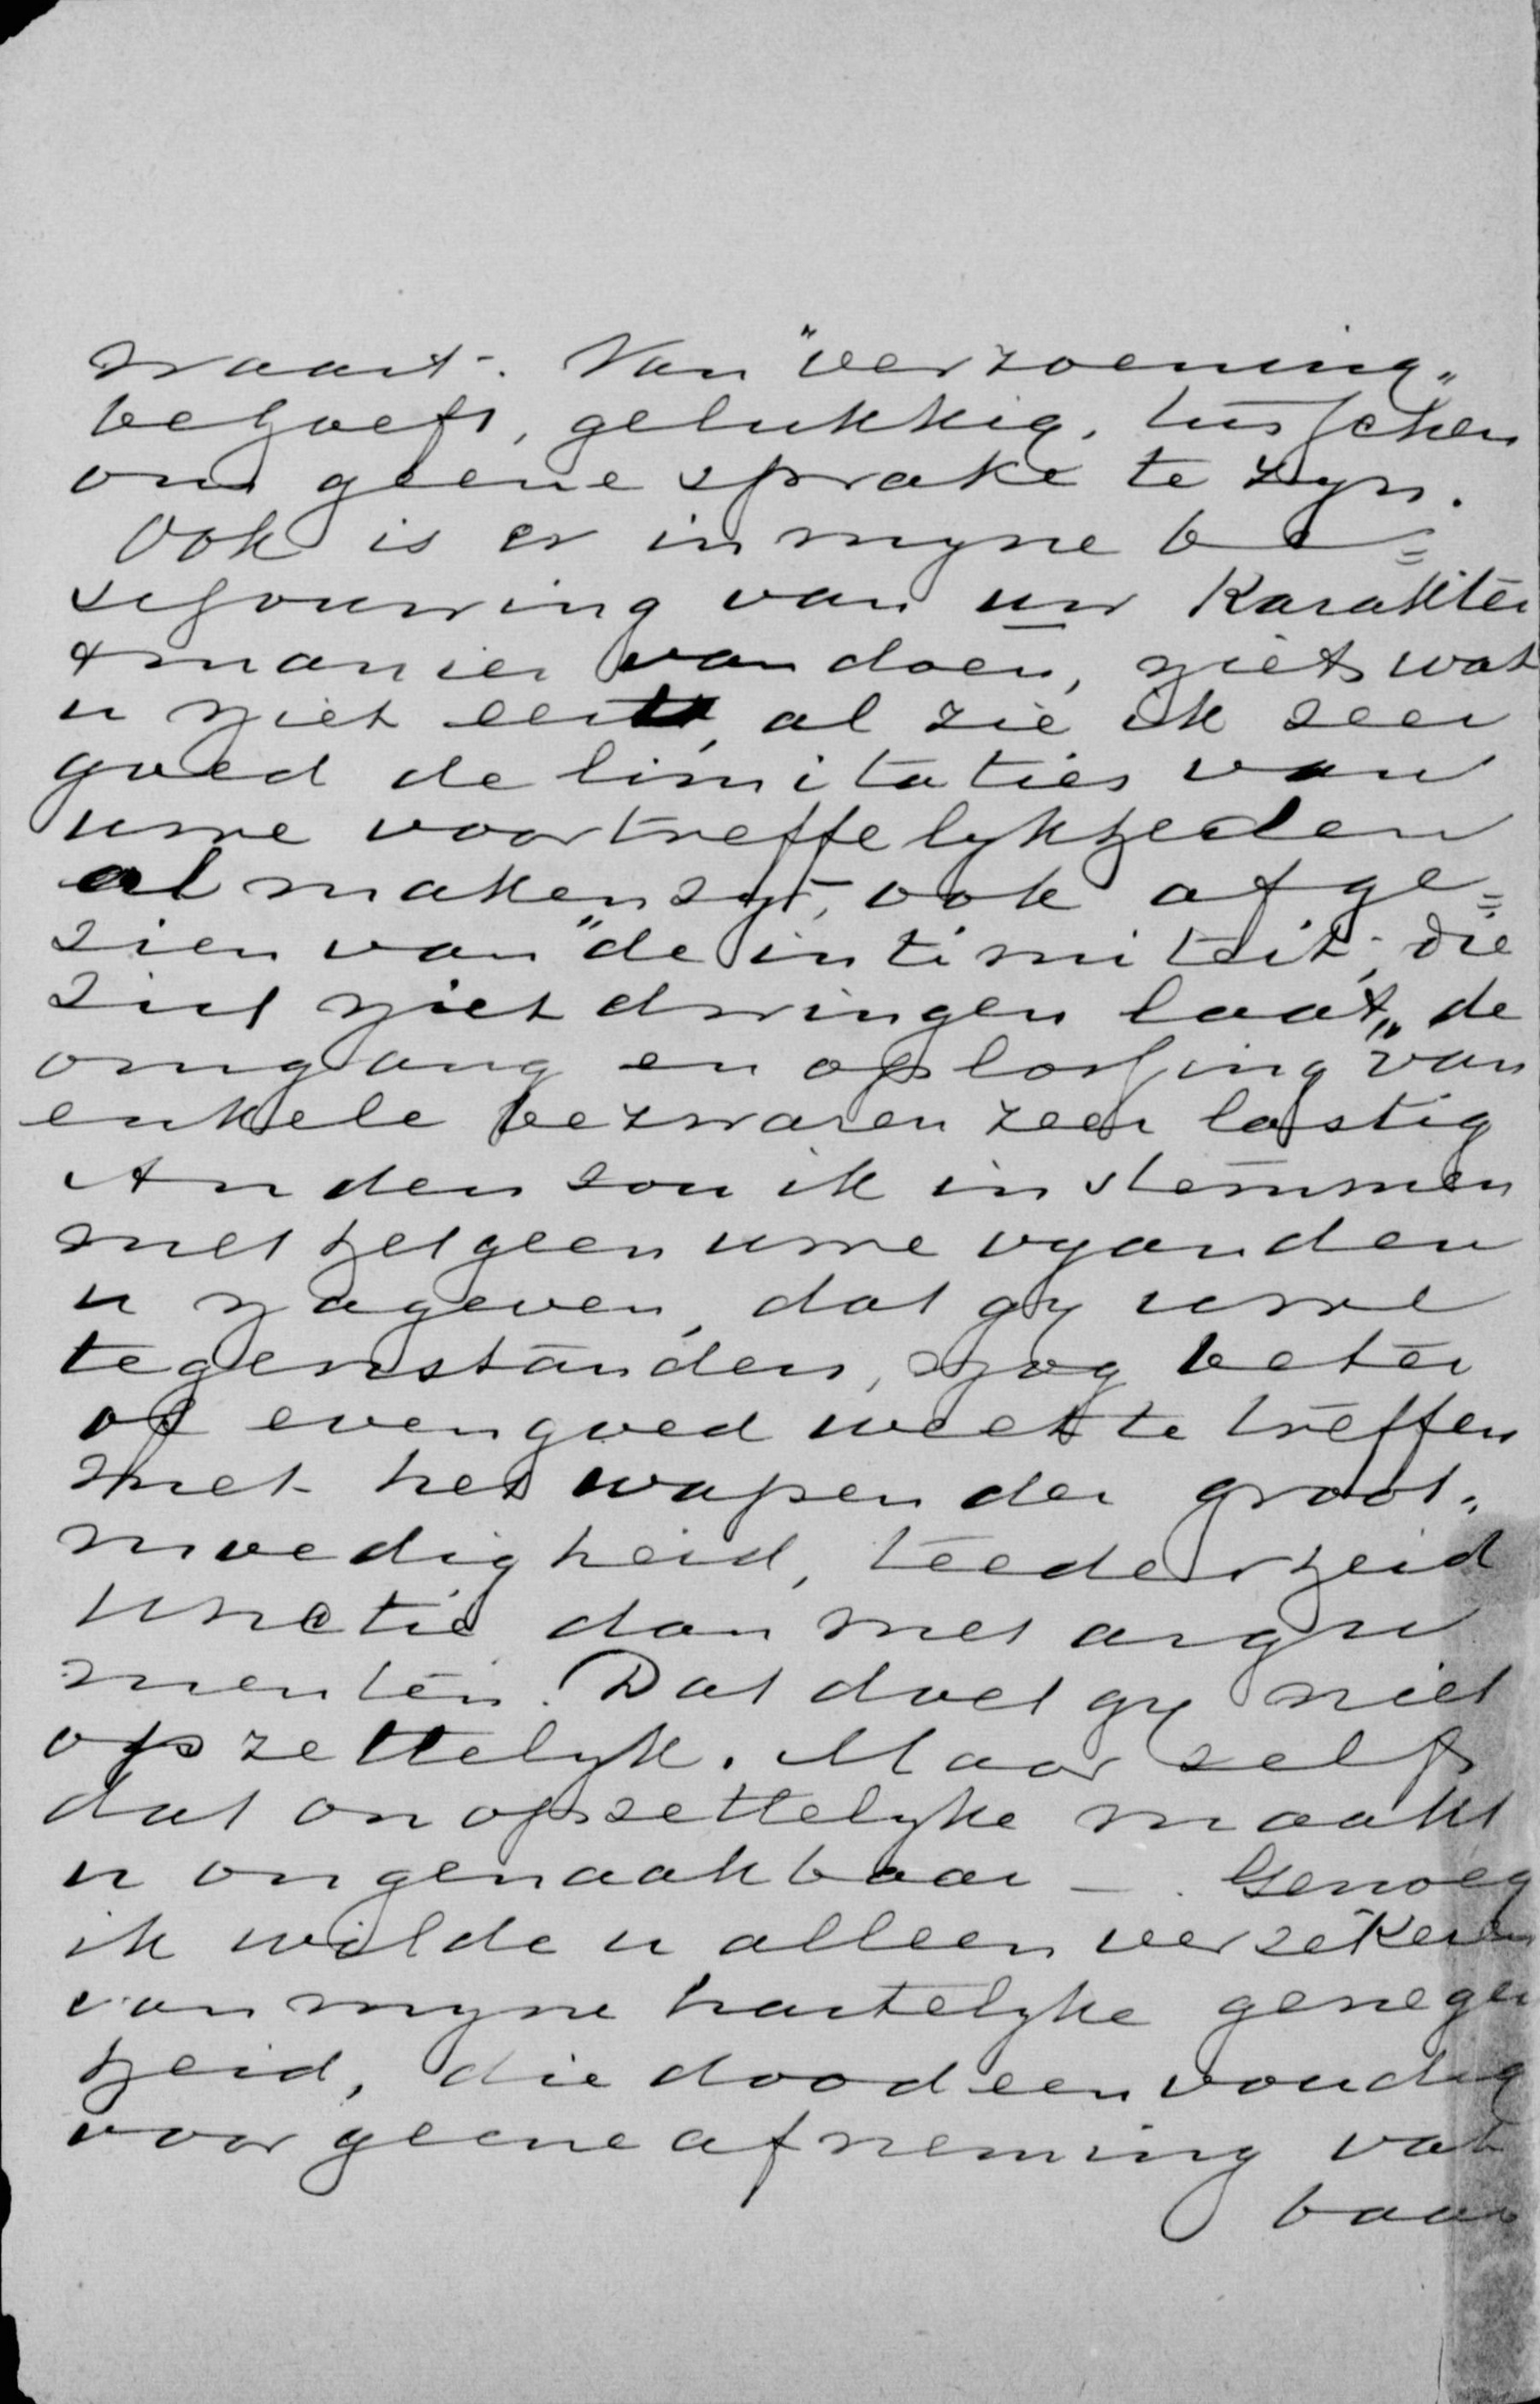 waart. Van "verzoening"
behoeft, gelukkig, tusschen
ons geene sprake te zyn.
Ook is er in myne be=
schouwing van uw Karakter
& manier van doen, niets wat
u niet eert, al zie ik zeer
goed de limitaties van
uwe voortreffelykheden
al maken zy, ook afge=
zien van "de intimiteit, die
zich niet dwingen laat", de
omgang en oplossing van
enkele bezwaren zeer lastig
Anders zou ik instemmen
met hetgeen uwe vyanden
u nageven, dat gy uwe
tegenstanders, nog beter
of evengoed weet te treffen
met het wapen der groot=
moedigheid, teederheid
unctie dan met argu
menten. Dat doet gy niet
opzettelyk. Maar zelfs
dat onopzettelyke maakt
u ongenaakbaar —. Genoeg
ik wilde u alleen verzekeren
van myne hartelyke genegen
heid, die doodeenvoudig
voor geene afneming vat
baar